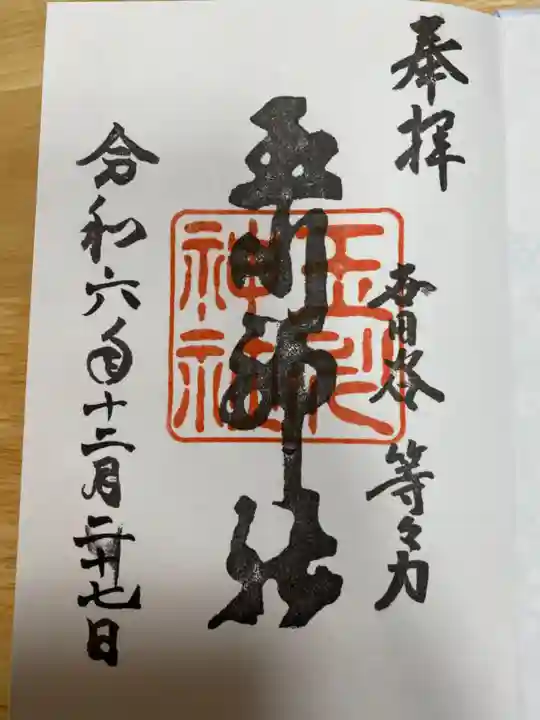 奉拝
世田谷 等々力
玉川神社
玉川
神社
令和六年十二月二十七日